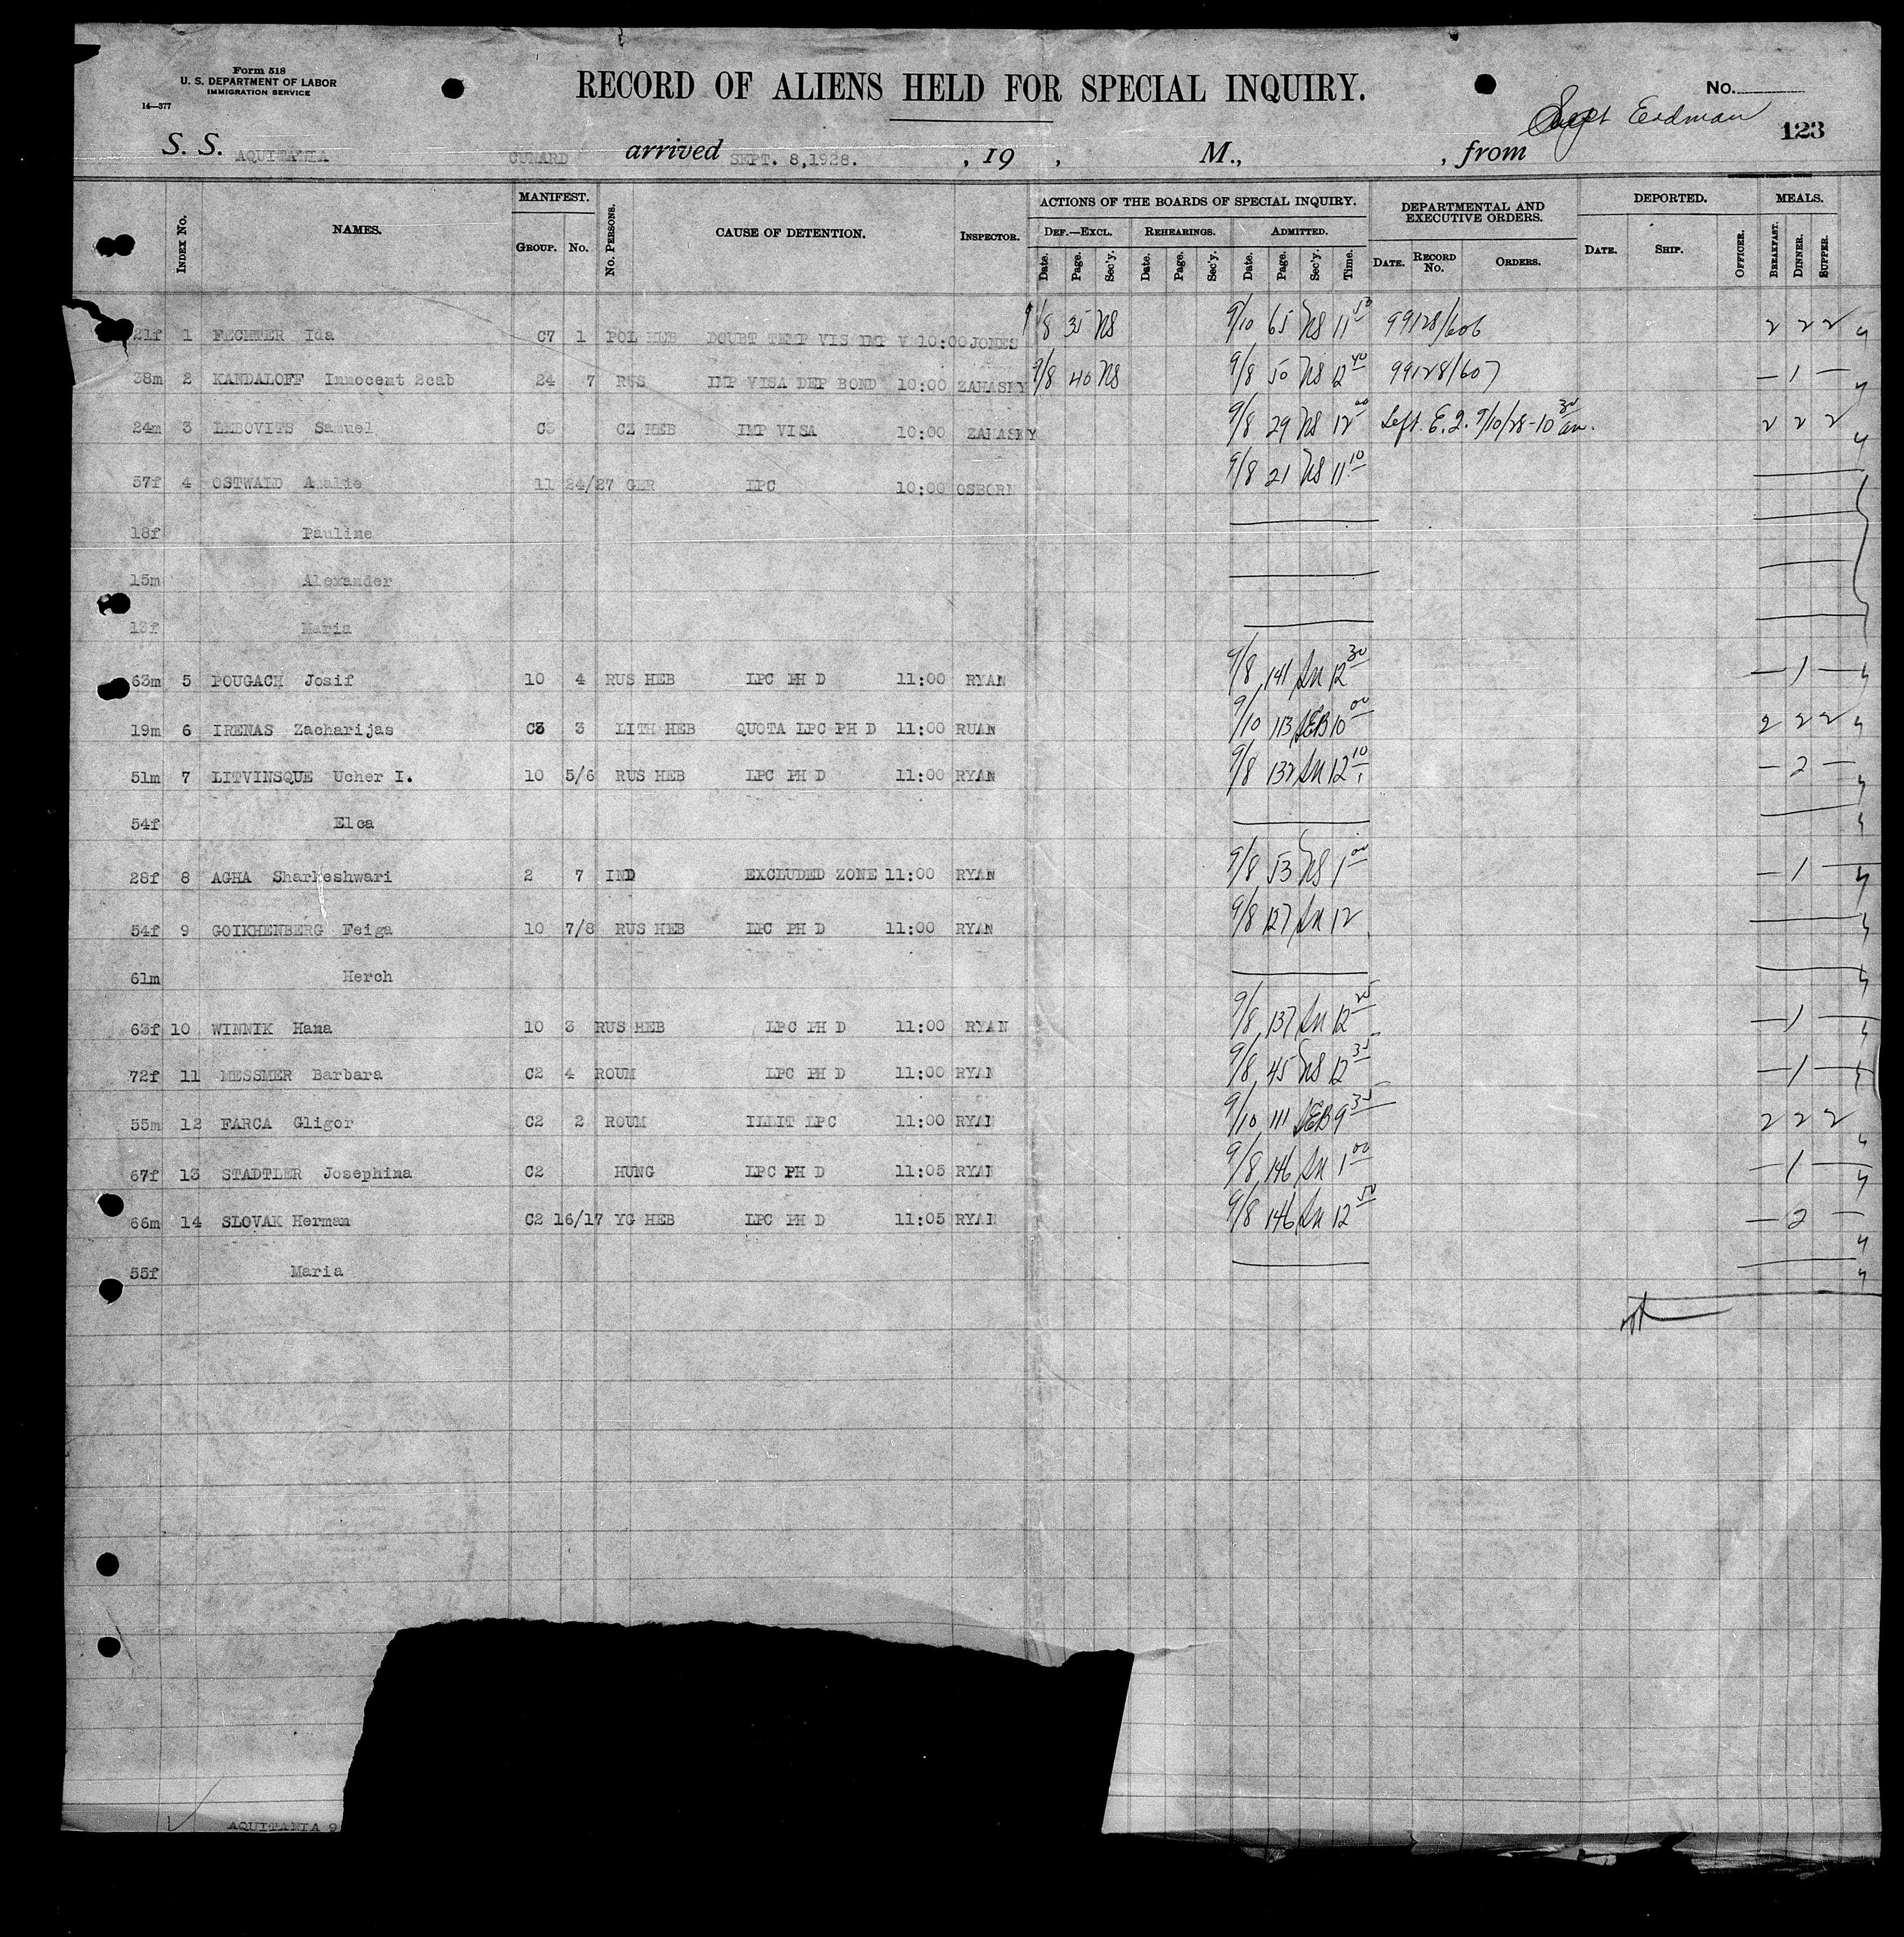 Form 518
U. S. DEPARTMENT OF LABOR
IMMIGRATION SERVICE
14—377
RECORD OF ALIENS HELD FOR SPECIAL INQUIRY.
No.
Erdman
123
S. S. AQUITANIA CUNARD arrived SEPT. 8,1928. , 19 , M., , from
INDEX No. NAMES. MANIFEST. GROUP. No. No. PERSONS. CAUSE OF DETENTION. INSPECTOR. ACTIONS OF THE BOARDS OF SPECIAL INQUIRY. DEF.—EXCL. REHEARINGS. ADMITTED. DEPARTMENTAL AND EXECUTIVE ORDERS. DEPORTED. MEALS.
Date. Page. Sec'y. Date. Page. Sec'y. Date. Page. Sec'y. Time. DATE. RECORD No. ORDERS. DATE. SHIP. OFFICER. BREAKFAST. DINNER. SUPPER.
21f 1 FECHTER Ida C7 1 POL HEB DOUBT TEMP VIS IMP V 10:00 JONES 9/8 35 NS 9/10 65 NS 11 99128/606 2 2 2
38m 2 KANDALOFF Innocent 2cab 24 7 RUS IMP VISA DEP BOND 10:00 ZAHASKY 9/8 40 NS 9/8 50 NS 12 40 99128/607 — 1 —
24m 3 LEBOVITS Samuel C3 CZ HEB IMP VISA 10:00 ZAHASKY 9/8 29 NS 12 00 Left E. I. 9/10/28-10 30 am. 2 2 2
57f 4 OSTWALD Amalie 11 24/27 GER LPC 10:00 OSBORN 9/8 21 NS 11 10
18f Pauline
15m Alexander
13f Maria
63m 5 POUGACH Josif 10 4 RUS HEB LPC PH D 11:00 RYAN 9/8 141 12 30 — 1 —
19m 6 IRENAS Zacharijas C3 3 LITH HEB QUOTA LPC PH D 11:00 RUAN 9/10 113 SEB 10 00 2 2 2
51m 7 LITVINSQUE Ucher I. 10 5/6 RUS HEB LPC PH D 11:00 RYAN 9/8 132 12 10 — 2 —
54f Elca
28f 8 AGHA Sharkeshwari 2 7 IND EXCLUDED ZONE 11:00 RYAN 9/8 53 NS 1 00 — 1 —
54f 9 GOIKHENBERG Feiga 10 7/8 RUS HEB LPC PH D 11:00 RYAN 9/8 127 12
61m Herch
63f 10 WINNIK Hana 10 3 RUS HEB LPC PH D 11:00 RYAN 9/8 137 12 25 — 1 —
72f 11 MESSMER Barbara C2 4 ROUM LPC PH D 11:00 RYAN 9/8 45 NS 12 35 — 1 —
55m 12 FARCA Gligor C2 2 ROUM ILLIT LPC 11:00 RYAN 9/10 111 SEB 9 35 2 2 2
67f 13 STADTLER Josephina C2 HUNG LPC PH D 11:05 RYAN 9/8 146 1 00 — 1 —
66m 14 SLOVAK Herman C2 16/17 YG HEB LPC PH D 11:05 RYAN 9/8 146 12 50 — 2 —
55f Maria
AQUITANIA 9